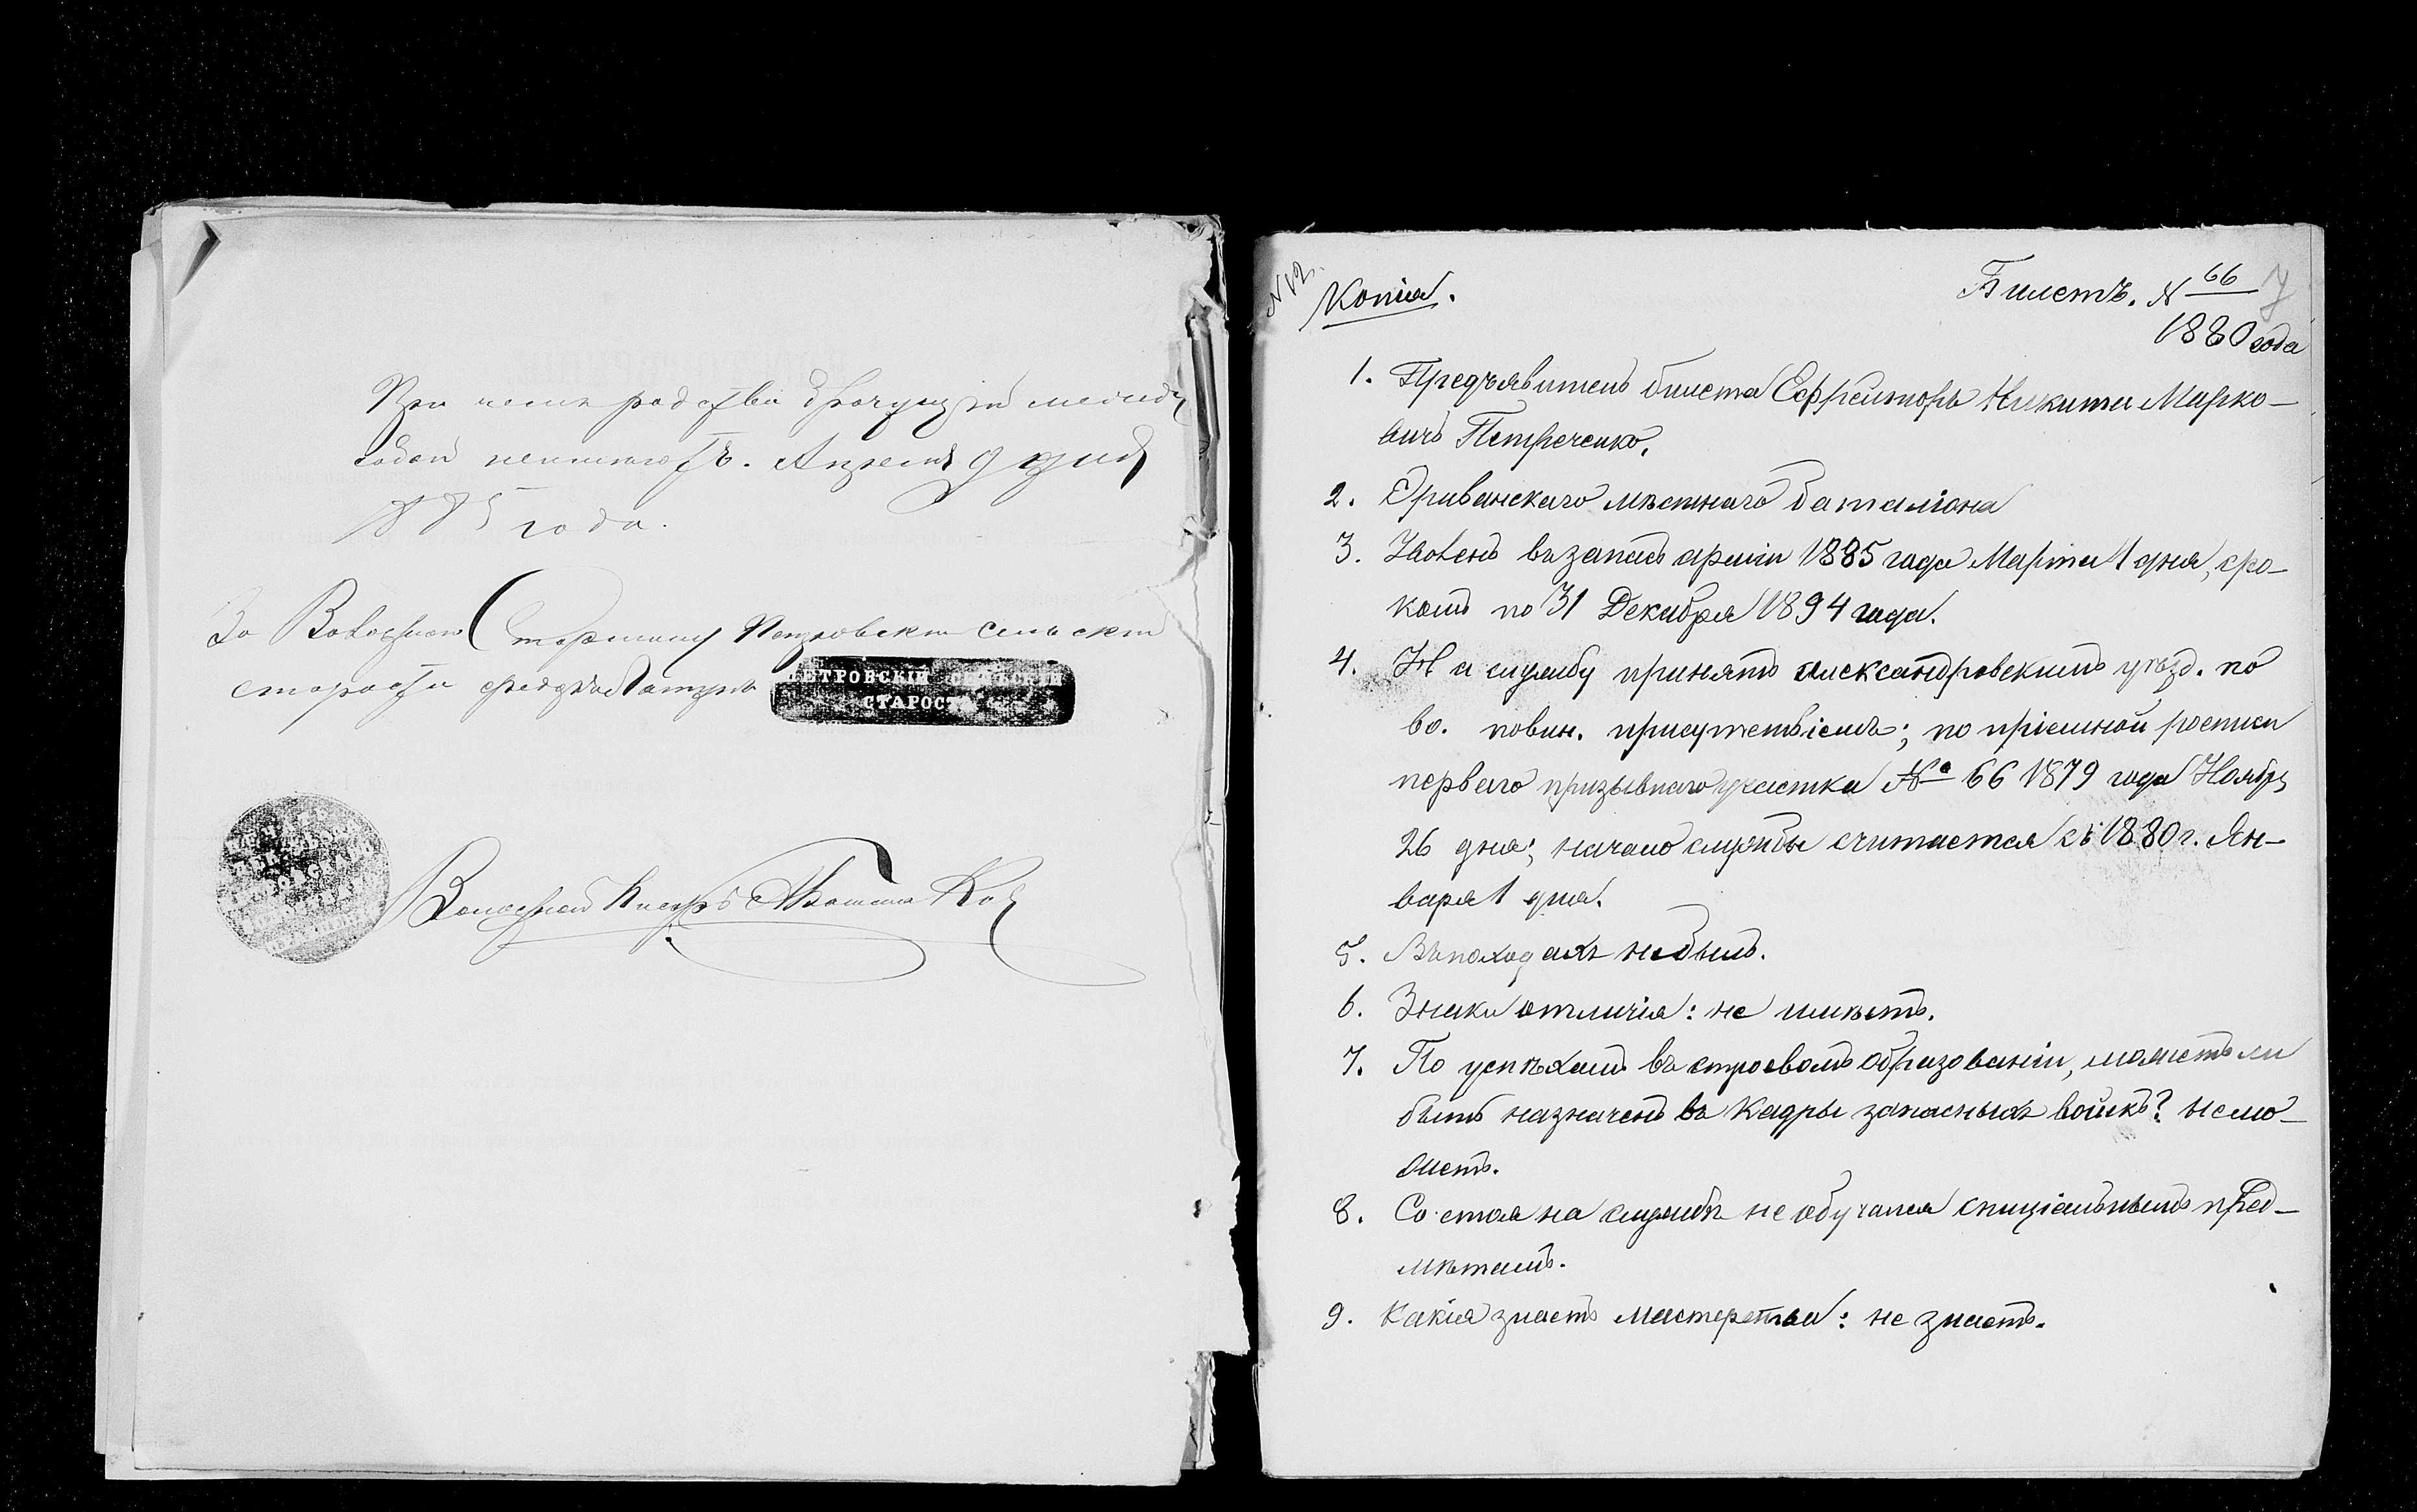 родства брачущіи между
собой неимеютъ. Апреля 9 дня
1885 года.
За Волостнаго Старшину Петровскій сельскій
староста
ПЕТРОВСКІЙ СЕЛЬСКІЙ
СТАРОСТА
Волостной Писарь
№ 12.
Копія.
Билетъ. № 66
7
1880 года
1. Предъявитель билета Ефрейторъ Никита Марко-
вичъ Петреченко.
2. Эриванскаго мѣстнаго баталіона
3. Уволенъ въ запасъ арміи 1885 года Марта 1 дня, сро-
комъ по 31 Декабря 1894 года.
4. На службу принятъ Александровскимъ уѣзд. по
во. повин. присутствіемъ; по пріемной росписи
перваго призывнаго участка № 66 1879 года Ноябр.
26 дня; начало службы считается съ 1880 г. Ян-
варя 1 дня.
5. Въ походахъ небылъ.
6. Знаки отличія: не имѣетъ.
7. По успѣхамъ въ строевомъ образованіи, можетъ ли
быть назначенъ въ кадры запасныхъ войскъ? не мо-
жетъ.
8. Состоя на службѣ не обучался спиціальнымъ пред-
мѣтамъ.
9. Какія знаетъ мастерства: не знаетъ.